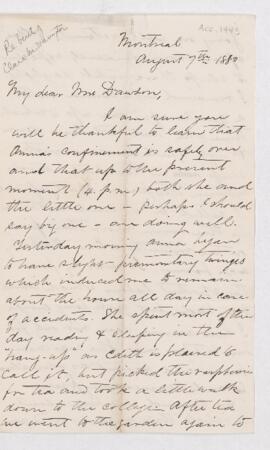 Acc. 1443
Re birth of
Clare M. Harrington
Montreal
August 7th 1880
My dear Mrs Dawson,
I am sure you
will be thankful to learn that
Anna's confinement is safely over
and that up to the present
moment (4 p.m.) both she and
the little one – perhaps I should
say big one – are doing well.
Yesterday morning Anna began
to have slight premonitory twinges
which induced me to remain
about the house all day in case
of accidents. She spent most of the
day reading & sleeping in the
"hang-up" as Edith is pleased to
call it, but picked the raspberries
for tea and took a little walk
down to the college. After tea
we went to the garden again to